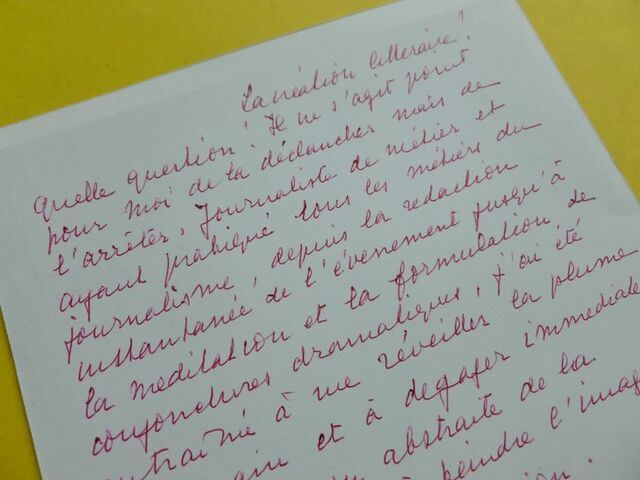 La création littéraire !
Quelle question ! Il ne s'agit point
pour moi de la déclancher mais de
l'arrêter. Journaliste de métier et
ayant pratiqué tous les métiers du
journalisme, depuis la redaction
instantanée de l'évenement jusqu'à
la meditation et la formulation de
conjonctures dramatiques, j'ai été
entrainé à me réveiller la plume
main et à degager immediate
abstraite de la
peindre l'imag